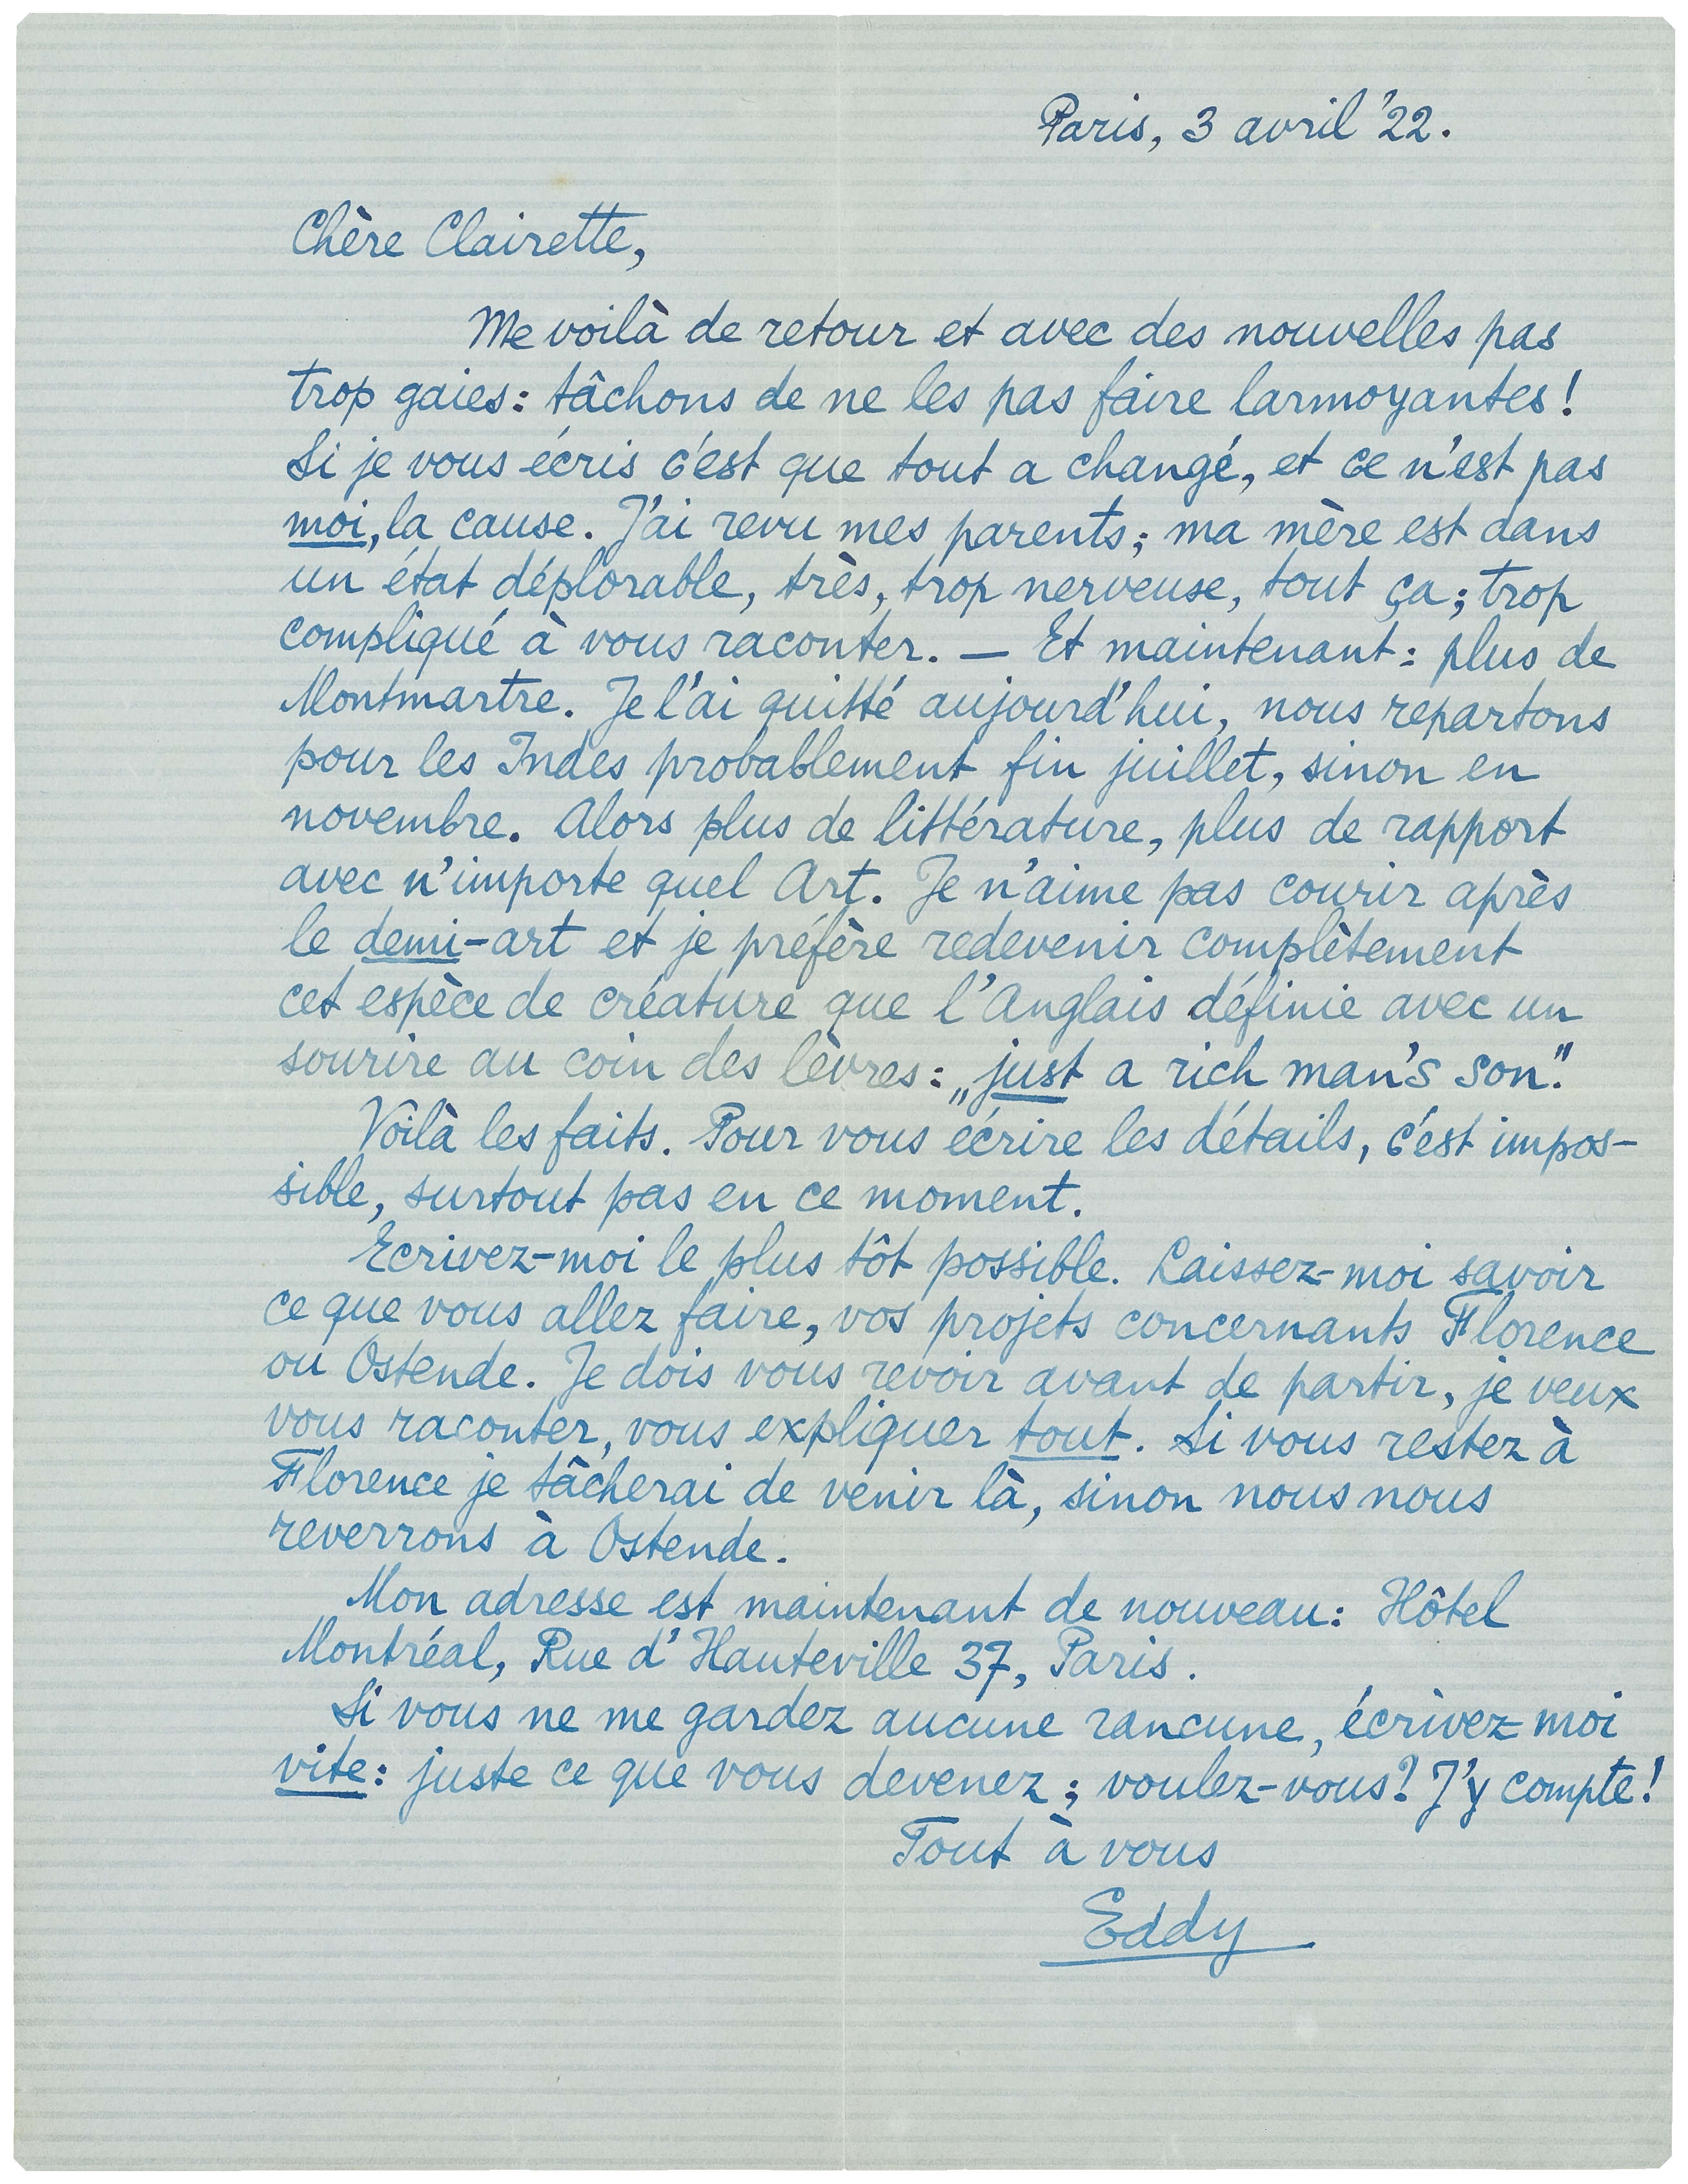 Paris, 3 avril '22.
Chère Clairette,
Me voilà de retour et avec des nouvelles pas
trop gaies: tâchons de ne les pas faire larmoyantes!
Si je vous écris c'est que tout a changé, et ce n'est pas
moi, la cause. J'ai revu mes parents; ma mère est dans
un état déplorable, très, trop nerveuse, tout ça; trop
compliqué à vous raconter. — Et maintenant: plus de
Montmartre. Je l'ai quitté aujourd'hui, nous repartons
pour les Indes probablement fin juillet, sinon en
novembre. Alors plus de littérature, plus de rapport
avec n'importe quel Art. Je n'aime pas courir après
le demi-art et je préfère redevenir complètement
cet espèce de créature que l'Anglais définie avec un
sourire au coin des lèvres: „just a rich man's son."
Voilà les faits. Pour vous écrire les détails, c'est impos-
sible, surtout pas en ce moment.
Ecrivez-moi le plus tôt possible. Laissez-moi savoir
ce que vous allez faire, vos projets concernants Florence
ou Ostende. Je dois vous revoir avant de partir, je veux
vous raconter, vous expliquer tout. Si vous restez à
Florence je tâcherai de venir là, sinon nous nous
reverrons à Ostende.
Mon adresse est maintenant de nouveau: Hôtel
Montréal, Rue d'Hauteville 37, Paris.
Si vous ne me gardez aucune rancune, écrivez-moi
vite: juste ce que vous devenez; voulez-vous? J'y compte!
Tout à vous
Eddy